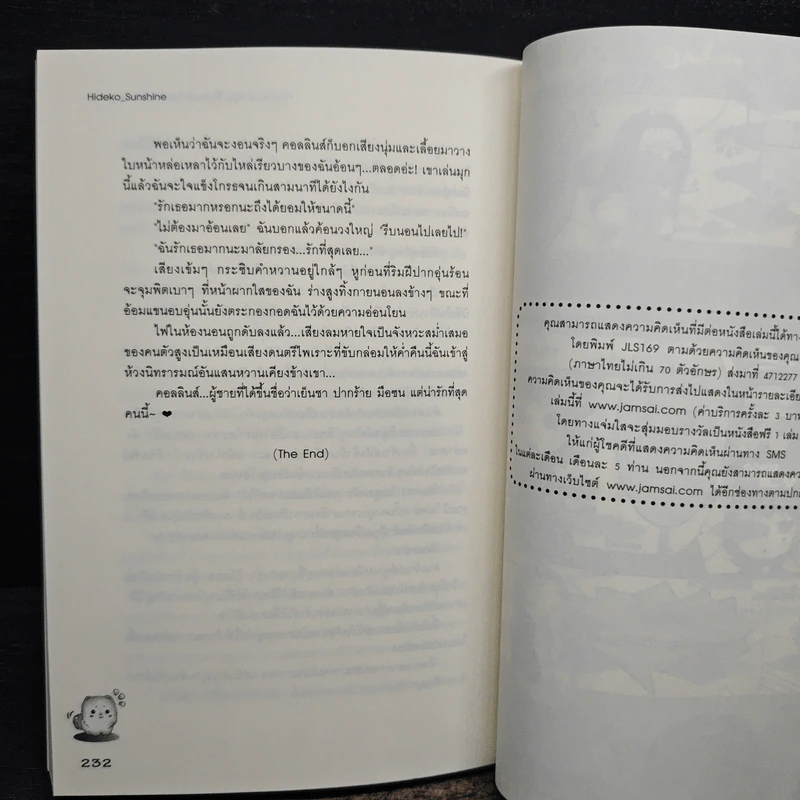 Hideko_Sunshine
พอเห็นว่าฉันจะงอนจริงๆ คอลลินส์ก็บอกเสียงนุ่มและเลื้อยมาวาง
ใบหน้าหล่อเหลาไว้กับไหล่เรียวบางของฉันอ้อนๆ...ตลอดอ่ะ! เขาเล่นมุก
นี้แล้วฉันจะใจแข็งโกรธจนเกินสามนาทีได้ยังไงกัน
"รักเธอมากหรอกนะถึงได้ยอมให้ขนาดนี้"
"ไม่ต้องมาอ้อนเลย" ฉันบอกแล้วค้อนวงใหญ่ "รีบนอนไปเลยไป!"
"ฉันรักเธอมากนะมาลัยกรอง...รักที่สุดเลย..."
เสียงเข้มๆ กระซิบคำหวานอยู่ใกล้ๆ หูก่อนที่ริมฝีปากอุ่นร้อน
จะจุมพิตเบาๆ ที่หน้าผากใสของฉัน ร่างสูงทิ้งกายนอนลงข้างๆ ขณะที่
อ้อมแขนอบอุ่นนั้นยังตระกองกอดฉันไว้ด้วยความอ่อนโยน
ไฟในห้องนอนถูกดับลงแล้ว...เสียงลมหายใจเป็นจังหวะสม่ำเสมอ
ของคนตัวสูงเป็นเหมือนเสียงดนตรีไพเราะที่ขับกล่อมให้ค่ำคืนนี้ฉันเข้าสู่
ห้วงนิทรารมณ์อันแสนหวานเคียงข้างเขา...
คอลลินส์...ผู้ชายที่ได้ขึ้นชื่อว่าเย็นชา ปากร้าย มือซน แต่น่ารักที่สุด
คนนี้~ ❤
(The End)
232
คุณสามารถแสดงความคิดเห็นที่มีต่อหนังสือเล่มนี้ได้ทาง
โดยพิมพ์ JLS169 ตามด้วยความคิดเห็นของคุณ
(ภาษาไทยไม่เกิน 70 ตัวอักษร) ส่งมาที่ 4712277
ความคิดเห็นของคุณจะได้รับการส่งไปแสดงในหน้ารายละเอีย
เล่มนี้ที่ www.jamsai.com (ค่าบริการครั้งละ 3 บาท
โดยทางแจ่มใสจะสุ่มมอบรางวัลเป็นหนังสือฟรี 1 เล่ม
ให้แก่ผู้โชคดีที่แสดงความคิดเห็นผ่านทาง SMS
ในแต่ละเดือน เดือนละ 5 ท่าน นอกจากนี้คุณยังสามารถแสดงคว
ผ่านทางเว็บไซต์ www.jamsai.com ได้อีกช่องทางตามปกต